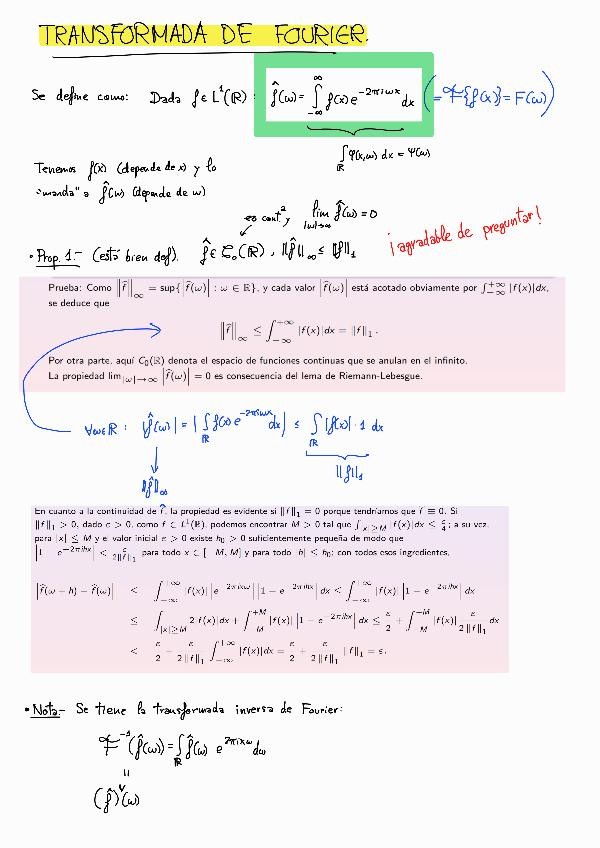 TRANSFORMADA DE FOURIER.
Se define como: Dada f∈L¹(ℝ): f̂(ω)=∫_{-∞}^{∞} f(x)e^{-2πiωx}dx (=ℱ{f(x)}=F(ω))
∫_ℝ φ(x,ω)dx=Ψ(ω)
Tenemos f(x) (depende de x) y lo
"manda" a f̂(ω) (depende de ω)
es contª y lim_{|ω|→∞} f̂(ω)=0
¡agradable de preguntar!
• Prop. 1.- (está bien def). f̂∈C₀(ℝ), ‖f̂‖_∞ ≤ ‖f‖₁
Prueba: Como ‖f̂‖_∞ = sup{|f̂(ω)| : ω ∈ ℝ}, y cada valor |f̂(ω)| está acotado obviamente por ∫_{-∞}^{+∞} |f(x)|dx,
se deduce que
‖f̂‖_∞ ≤ ∫_{-∞}^{+∞} |f(x)|dx = ‖f‖₁ .
Por otra parte, aquí C₀(ℝ) denota el espacio de funciones continuas que se anulan en el infinito.
La propiedad lim_{|ω|→∞} |f̂(ω)| = 0 es consecuencia del lema de Riemann-Lebesgue.
∀ω∈ℝ: |f̂(ω)|=|∫_ℝ f(x)e^{-2πiωx}dx| ≤ ∫_ℝ |f(x)|·1 dx
‖f̂‖_∞ ‖f‖₁
En cuanto a la continuidad de f̂, la propiedad es evidente si ‖f‖₁ = 0 porque tendríamos que f ≡ 0. Si
‖f‖₁ > 0, dado ε > 0, como f ∈ L¹(ℝ), podemos encontrar M > 0 tal que ∫_{|x|≥M} |f(x)|dx ≤ ε/4; a su vez,
para |x| ≤ M y el valor inicial ε > 0 existe h₀ > 0 suficientemente pequeña de modo que
|1 − e^{−2πihx}| < ε/(2‖f‖₁) para todo x ∈ [−M, M] y para todo |h| ≤ h₀; con todos esos ingredientes,
|f̂(ω + h) − f̂(ω)| ≤ ∫_{−∞}^{+∞} |f(x)| |e^{−2πixω}| |1 − e^{−2πihx}| dx ≤ ∫_{−∞}^{+∞} |f(x)| |1 − e^{−2πihx}| dx
≤ ∫_{|x|≥M} 2|f(x)|dx + ∫_{−M}^{+M} |f(x)| |1 − e^{−2πihx}| dx ≤ ε/2 + ∫_{−M}^{+M} |f(x)| ε/(2‖f‖₁) dx
< ε/2 + ε/(2‖f‖₁) ∫_{−∞}^{+∞} |f(x)|dx = ε/2 + ε/(2‖f‖₁) ‖f‖₁ = ε.
• Nota.- Se tiene la transformada inversa de Fourier:
ℱ⁻¹(f̂(ω))=∫_ℝ f̂(ω) e^{2πixω}dω
=
(f̂)^∨(ω)